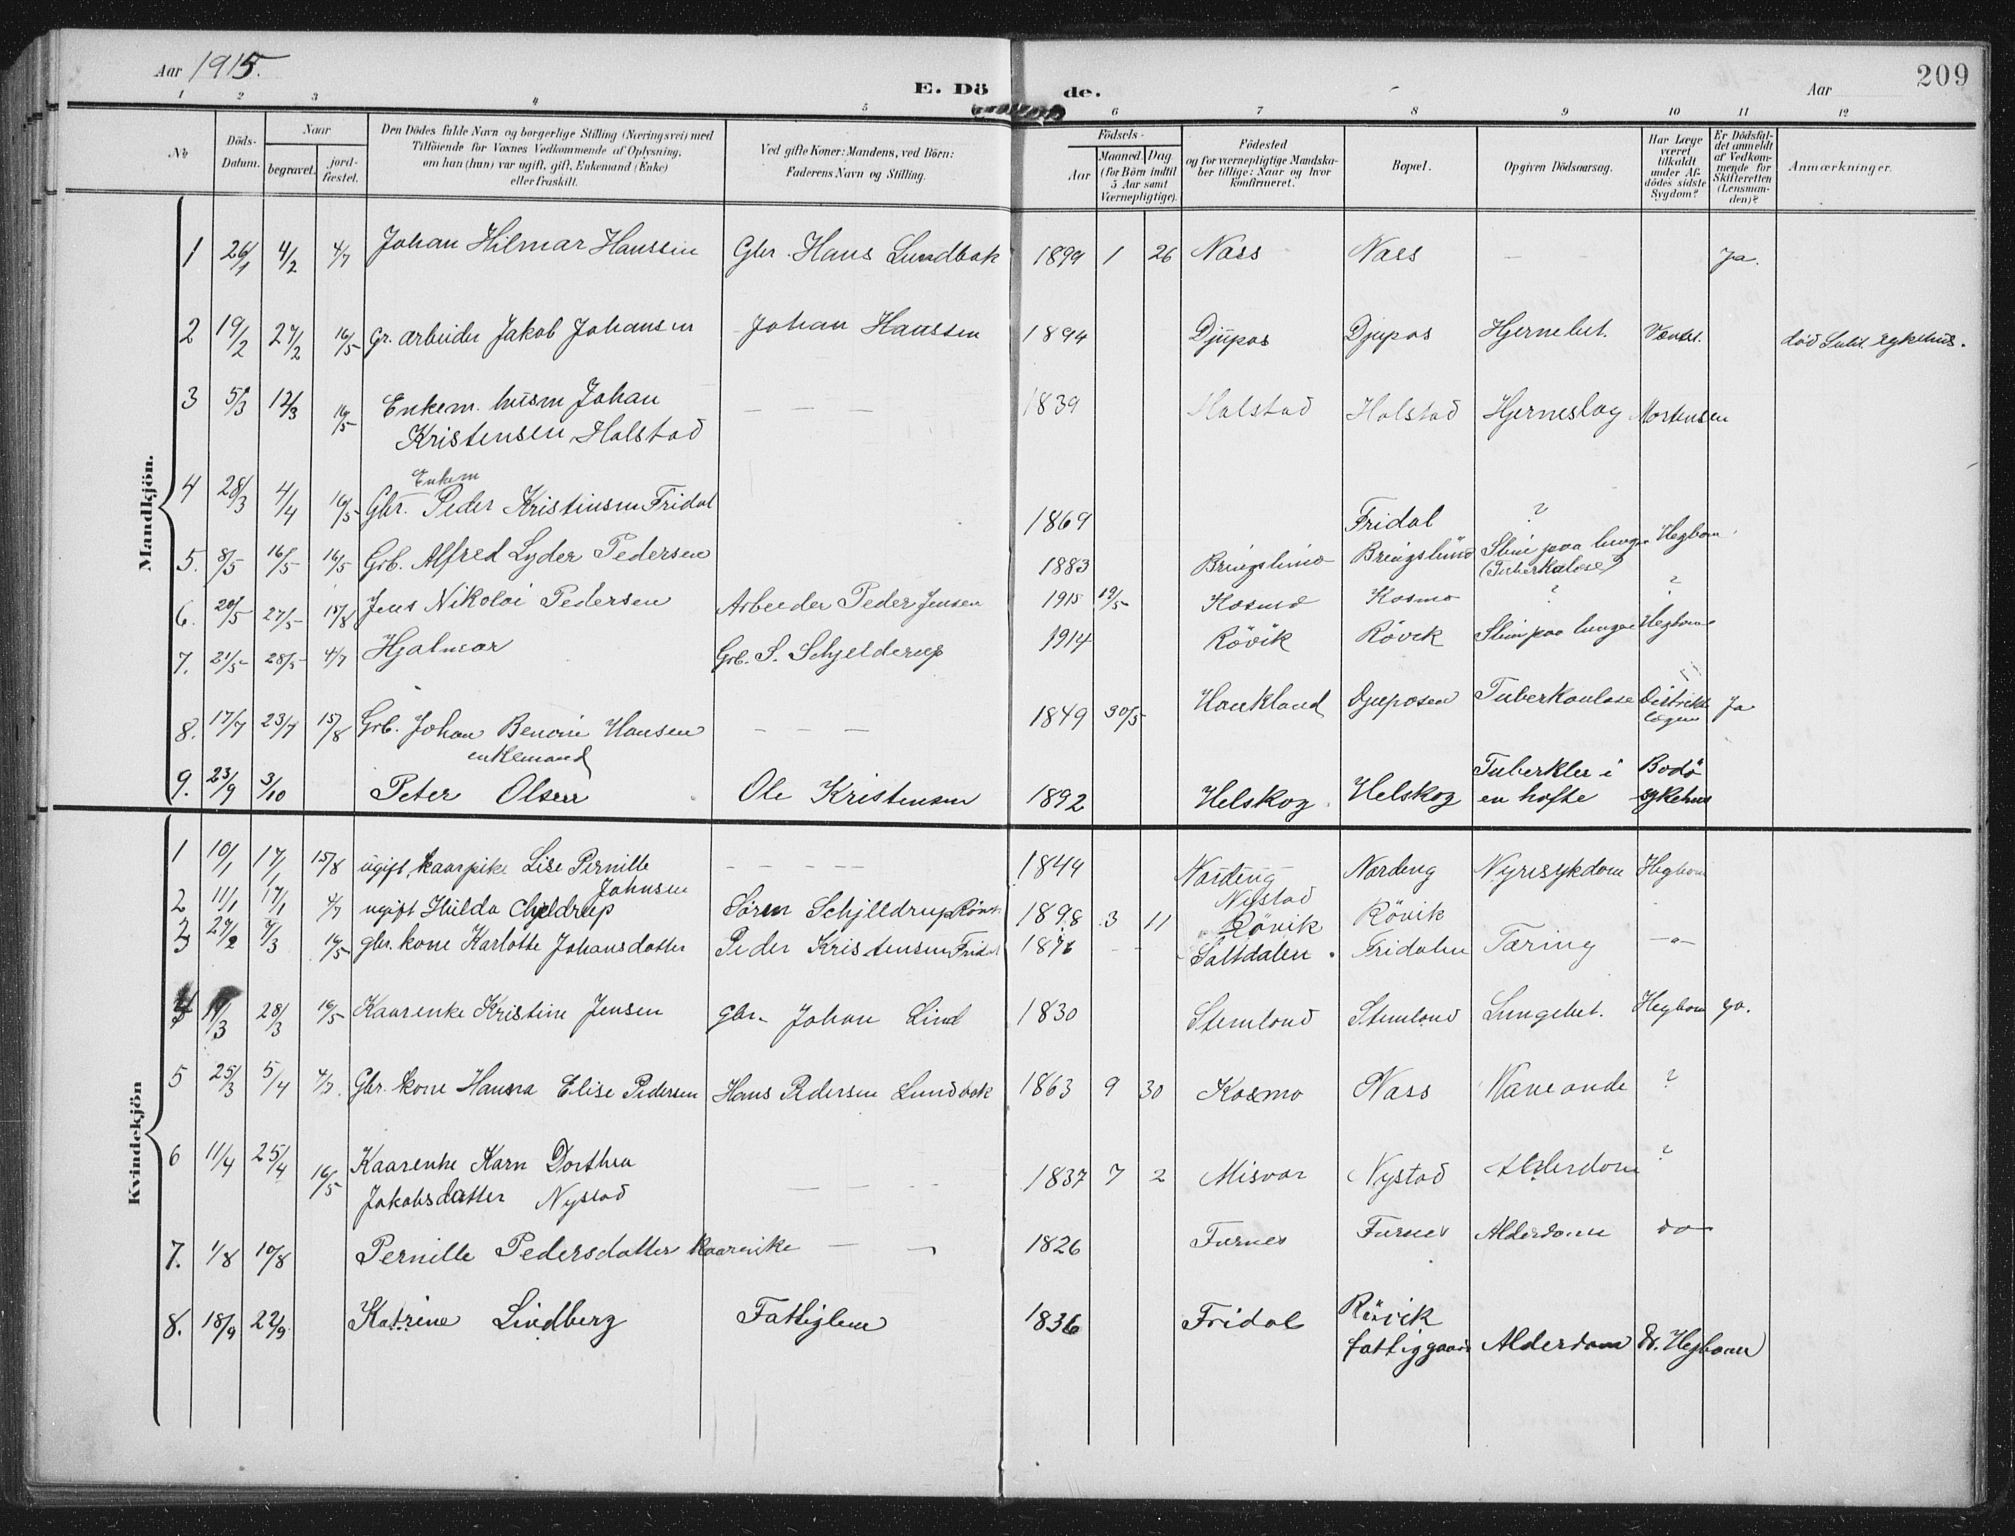 Aar 1915.
E. Dö de.
Aar
209
1 2 3 4 5 6 7 8 9 10 11 12
No
Döds-Datum.
Naar
begravet.
jord-fæstet.
Den Dödes fulde Navn og borgerlige Stilling (Næringsvei) med
Tilföiende for Voxnes Vedkommende af Oplysning,
om han (hun) var ugift, gift, Enkemand (Enke)
eller fraskilt.
Ved gifte Koner: Mandens, ved Börn:
Faderens Navn og Stilling.
Födsels-
Aar
Maaned. Dag.
(for Börn indtil
5 Aar samt
Værnepligtige).
Födested
og for værnepligtige Mandska-
ber tillige: Naar og hvor
konfirmeret.
Bopæl.
Opgiven Dödsaarsag.
Har Læge
været
tilkaldt
under Af-
dödes sidste
Sygdom?
Er Dödsfal-
det anmeldt
af Vedkom-
mende for
Skifteretten
(Lensman-
den)?
Anmærkninger.
Mandkjön.
1 26/1 4/2 4/7 Johan Hilmar Hanssen Gbr. Hans Lundbak 1899 1 26 Næss Næs — — Ja.
2 19/2 27/2 16/5 Gr. arbeider Jakob Johansen Johan Hanssen 1894 Djüpos Djupos Hjernebet. død Sulit. sykehus.
3 5/3 12/3 16/5 Enkem. husm Johan
Kristensen Halstad — — — 1839 Halstad Halstad Hjerneslag Mortensen
4 28/3 4/4 16/5 Gbr. Enkem Peder Kristensen Fridal 1869 Fridal ?
5. 8/5 16/5 16/5 Grb. Alfred Lyder Pedersen 1883 Bringslimo Bringslimo Slim paa lunger
(Tuberkulose) Hegbom.
6. 20/5 27/5 15/8 Jens Nikolai Pedersen Arbeider Peder Jensen 1915 19/5 Kosmo Kosmo ? ?
7. 21/5 28/5 4/7 Hjalmar Grb. S. Schjelderup 1914 Rövik Rövik Slim paa lunger Hegbom
8. 17/7 23/7 15/8 Grb. Johan Benoni Hansen
enkemand — — — 1849 30/5 Haukland Djuposen Tuberkulose Distrikts
lægen Ja
9. 23/9 3/10 Peter Olsen Ole Kristensen 1892 Helskog Helskog Tuberkler i
en hofte Bodö
sykehus
Kvindekjön
1 10/1 17/1 15/8 ugift, kaarpike Lise Pernille
Johnsen — — — — 1844 Nording
Nystad Nording Nyresykdom Hegbom
2 11/1 17/1 4/7 ugift Hulda Chjeldrup Sören Schjelldrup Rövik 1898 3 11 Rövik Rövik
3 27/2 9/3 16/5 gbr. kone Karlotte Johansdatter Peder Kristensen Fridal 1876 — — Saltdalen Fridalen Tæring —"—
4 19/3 28/3 16/5 Kaarenke Kristine Jensen Gbr. Johan Lind 1830 Stemland Stemland Lungebet. Hegbom ja.
5 25/3 5/4 4/7. Gbr. kone Hanna Elise Pedersen Hans Pedersen Lundbak 1863 9 30 Kosmo Næss Vaneonde ?
6 11/4 25/4 16/5 Kaarenke Karn Dorthea
Jakobsdatter Nystad — — — 1837 7 2 Misvær Nystad Alderdom ?
7. 1/8 10/8 Pernille Pedersdatter kaarenke — — 1826 Furnes Furnes Alderdom do
8. 18/9 22/9. Katrine Lindberg Fattiglem 1836 Fridal Rövik
fattiggaard Alderdom Dr. Hegbom